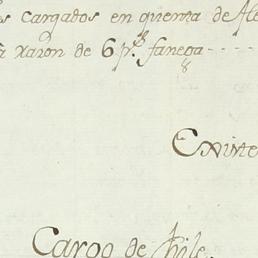 s cargados en quenta de Ale
a raxon de 6 p.s fanega
Existe
Cargo de Chile.